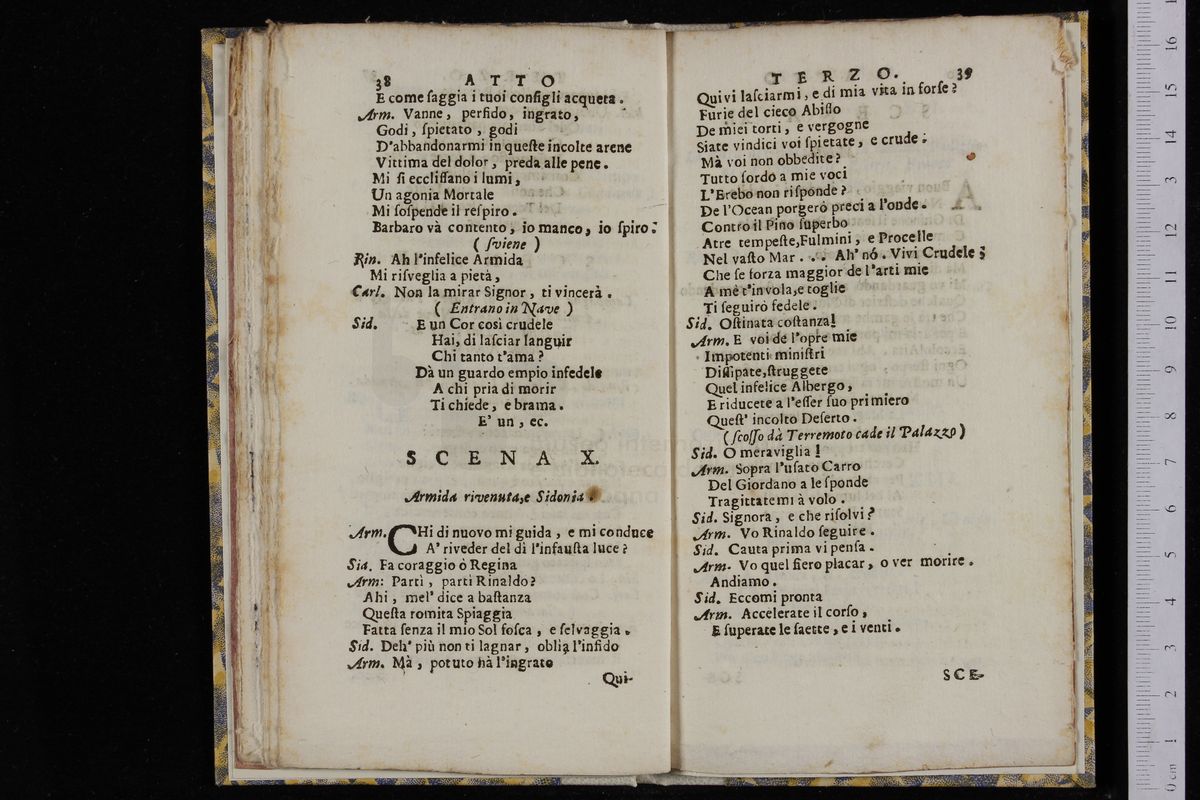 38 ATTO
E come ſaggia i tuoi conſigli acqueta.
Arm. Vanne, perfido, ingrato,
Godi, ſpietato, godi
D'abbandonarmi in queſte incolte arene
Vittima del dolor, preda alle pene.
Mi ſi eccliſſano i lumi,
Un agonia Mortale
Mi ſoſpende il reſpiro.
Barbaro và contento, io manco, io ſpiro.
( ſviene )
Rin. Ah l'infelice Armida
Mi riſveglia a pietà,
Carl. Non la mirar Signor, ti vincerà.
( Entrano in Nave )
Sid. E un Cor così crudele
Hai, di laſciar languir
Chi tanto t'ama?
Dà un guardo empio infedele
A chi pria di morir
Ti chiede, e brama.
E' un, ec.
SCENA X.
Armida rivenuta, e Sidonia.
Arm. CHi di nuovo mi guida, e mi conduce
A' riveder del dì l'infauſta luce?
Sid. Fa coraggio ò Regina
Arm: Partì, partì Rinaldo?
Ahi, mel' dice a baſtanza
Queſta romita Spiaggia
Fatta ſenza il mio Sol foſca, e ſelvaggia.
Sid. Deh' più non ti lagnar, oblia l'infido
Arm. Mà, potuto hà l'ingrato
Qui-
TERZO. 39
Quivi laſciarmi, e di mia vita in forſe?
Furie del cieco Abiſſo
De miei torti, e vergogne
Siate vindici voi ſpietate, e crude.
Mà voi non obbedite?
Tutto ſordo a mie voci
L'Erebo non riſponde?
De l'Ocean porgerò preci a l'onde.
Contro il Pino ſuperbo
Atre tempeſte, Fulmini, e Procelle
Nel vaſto Mar . . . Ah' nó. Vivi Crudele;
Che ſe forza maggior de l'arti mie
A mè t'invola, e toglie
Ti ſeguirò fedele.
Sid. Oſtinata coſtanza!
Arm. E voi de l'opre mie
Impotenti miniſtri
Diſſipate, ſtruggete
Quel infelice Albergo,
E riducete a l'eſſer ſuo primiero
Queſt' incolto Deſerto.
( ſcoſſo dà Terremoto cade il Palazzo )
Sid. O meraviglia!
Arm. Sopra l'uſato Carro
Del Giordano a le ſponde
Tragittatemi à volo.
Sid. Signora, e che riſolvi?
Arm. Vo Rinaldo ſeguire.
Sid. Cauta prima vi penſa.
Arm. Vo quel fiero placar, o ver morire.
Andiamo.
Sid. Eccomi pronta
Arm. Accelerate il corſo,
E ſuperate le ſaette, e i venti.
SCE-